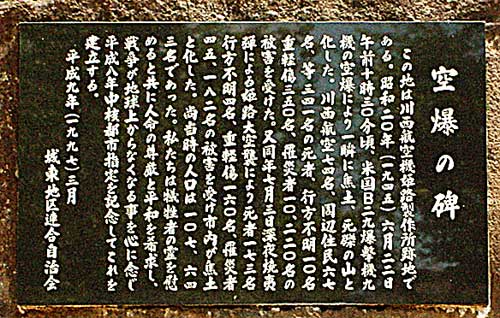 空爆の碑
この地は川西航空機姫路製作所跡地で
ある。昭和二〇年(一九四五)六月二二日
午前十時三〇分頃、米国B二九爆撃機九
機の空爆により一瞬に焦土、死隊の山と
化した。川西航空七四名、周辺住民六七
名、等三四一名の死者、行方不明一〇名
重軽傷三五〇名、罹災者一〇、二二〇名の
被害を受けた。又同年七月三日深夜焼夷
弾による姫路大空襲により死者一七三名
行方不明四名、重軽傷一六〇名、罹災者
四五、一八二名の被害を受け市内が焦土
と化した。尚当時の人口は一〇七、六四
三名であった。私たちは犠牲者の霊を慰
めると共に人命の尊厳と平和を希求し、
戦争が地球上からなくなる事を心に念じ
平成八年中核都市指定を記念してこれを
建立する。
平成九年(一九九七)三月
城東地区連合自治会